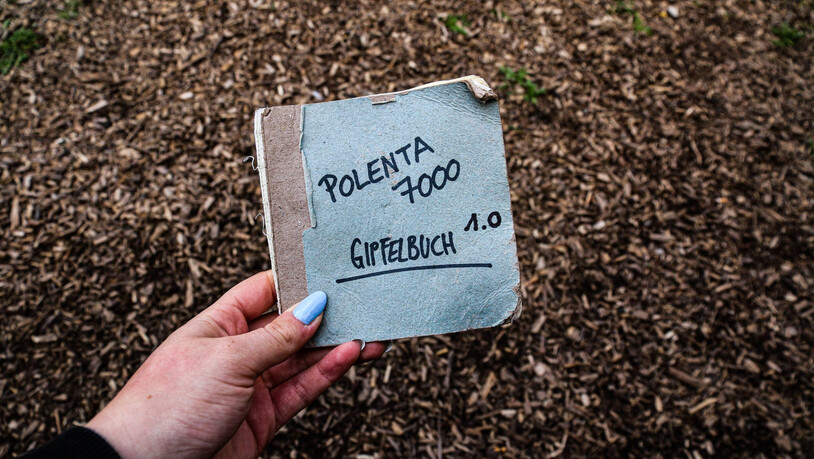 POLENTA
7000
GIPFELBUCH 1.0